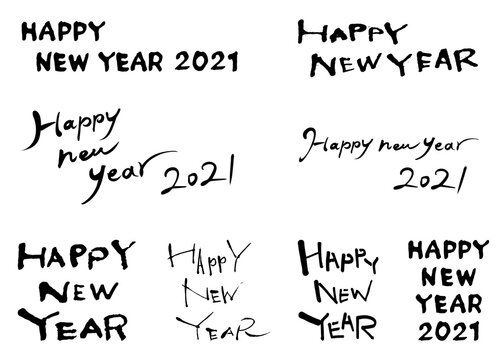 HAPPY
NEW YEAR 2021
HAPPY
NEW YEAR
Happy
new
year 2021
Happy new year
2021
HAPPY
NEW
YEAR
HAppY
NEW
YEAR
HAPPY
NEW
YEAR
HAPPY
NEW
YEAR
2021